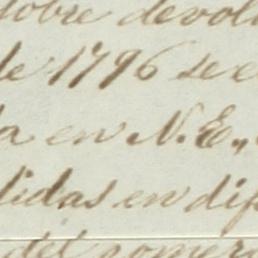 tobre devol
de 1796 se e
a en N. E.,,
didas en dif
del